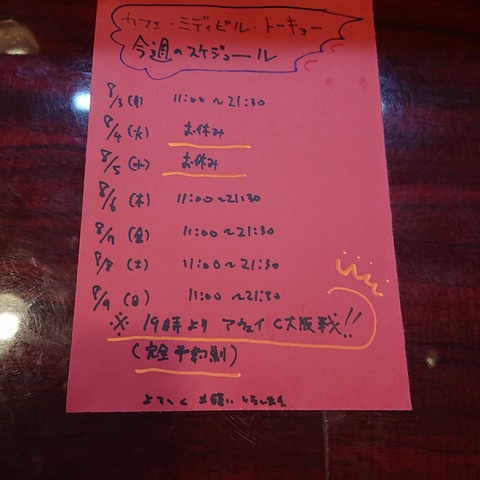 カフェ・ミディピル・トーキョー
今週のスケジュール
8/3(月) 11:00〜21:30
8/4(火) お休み
8/5(水) お休み
8/6(木) 11:00〜21:30
8/7(金) 11:00〜21:30
8/8(土) 11:00〜21:30
8/9(日) 11:00〜21:30
※ 19時より アウェイ C大阪戦!!
(完全予約制)
よろしく お願い いたします